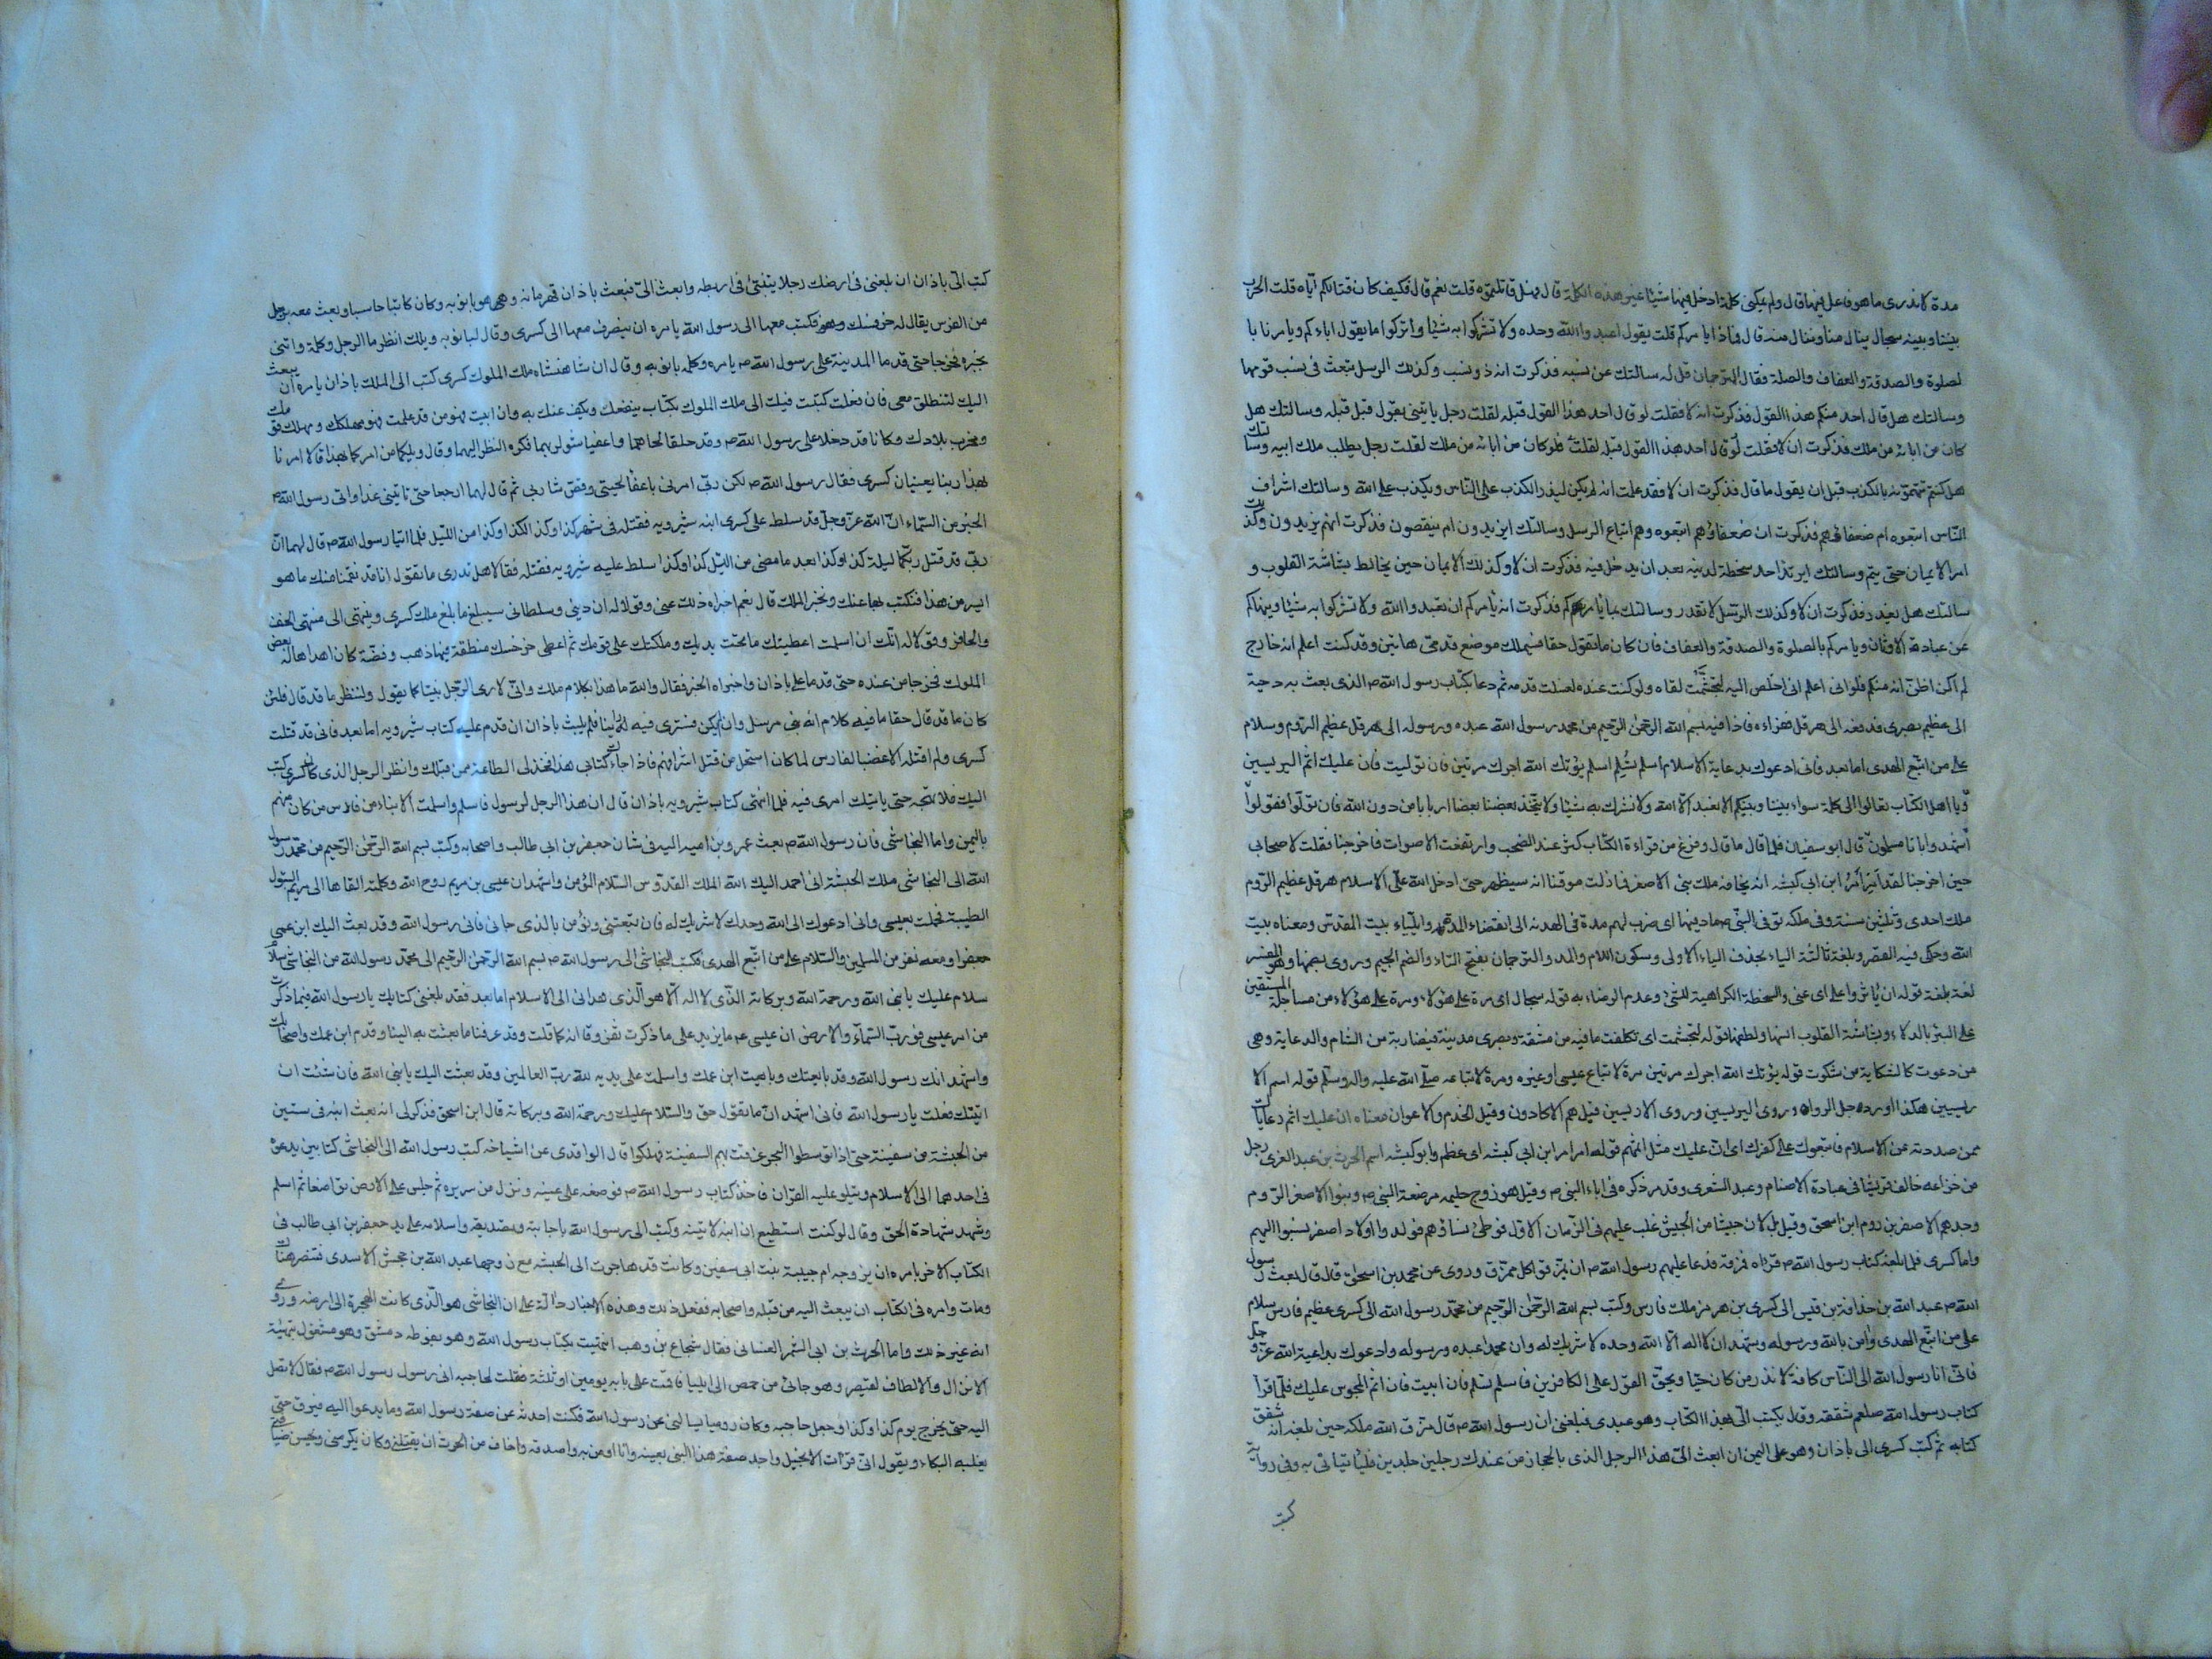 مدة لا ندرى ما هو فاعل فيها قال ولم يمكنى كلمة ادخل فيها شيئا غير هذه الكلمة قال فهل قاتلتموه قلت نعم قال فكيف كان قتالكم اياه قلت الحرب
بيننا وبينه سجال ينال منا وننال منه قال فماذا يامركم قلت يقول اعبدوا الله وحده ولا تشركوا به شيئا واتركوا ما يقول اباءكم ويامرنا با
لصلوة والصدقة والعفاف والصلة فقال للترجمان قل له سالتك عن نسبه فذكرت انه ذو نسب وكذلك الرسل تبعث فى نسب قومها
وسالتك هل قال احد منكم هذا القول فذكرت ان لا فقلت لو قال احد هذا القول قبله لقلت رجل ياتسى بقول قيل قبله وسالتك هل
كان من ابائه من ملك فذكرت ان لا فقلت لو قال احد هذا القول قبله لقلت فلو كان من ابائه من ملك لقلت رجل يطلب ملك ابيه وسالتك
هل كنتم تتهمونه بالكذب قبل ان يقول ما قال فذكرت ان لا فقد علمت انه لم يكن ليذر الكذب على الناس ويكذب على الله وسالتك اشراف
الناس اتبعوه ام ضعفاؤهم فذكرت ان ضعفاؤهم اتبعوه وهم اتباع الرسل وسالتك ايزيدون ام ينقصون فذكرت انهم يزيدون وكذلك
امر الايمان حتى يتم وسالتك ايرتد احد سخطة لدينه بعد ان يدخل فيه فذكرت ان لا وكذلك الايمان حين يخالط بشاشة القلوب و
سالتك هل يغدر فذكرت ان لا وكذلك الرسل لا تغدر وسالتك بما يامركم فذكرت انه يامركم ان تعبدوا الله ولا تشركوا به شيئا وينهاكم
عن عبادة الاوثان ويامركم بالصلوة والصدقة والعفاف فان كان ما تقول حقا فسيملك موضع قدمى هاتين وقد كنت اعلم انه خارج
لم اكن اظن انه منكم فلو انى اعلم انى اخلص اليه لتجشمت لقاه ولو كنت عنده لغسلت قدمه ثم دعا بكتاب رسول الله ص الذى بعث به دحية
الى عظيم بصرى فدفعه الى هرقل فقراءه فاذا فيه بسم الله الرحمن الرحيم من محمد رسول الله عبده ورسوله الى هرقل عظيم الروم وسلام
على من اتبع الهدى اما بعد فانى ادعوك بدعاية الاسلام اسلم تسلم اسلم يؤتك الله اجرك مرتين فان توليت فان عليك اثم اليريسين
ويا اهل الكتاب تعالوا الى كلمة سواء بيننا وبينكم الا نعبد الا الله ولا نشرك به شيئا ولا يتخذ بعضنا بعضا اربابا من دون الله فان تولوا فقولوا
اشهدوا بانا مسلمون قال ابو سفيان فلما قال ما قال وفرغ من قراءة الكتاب كثر عنده الصخب وارتفعت الاصوات فاخرجنا فقلت لاصحابى
حين اخرجنا لقد امر امر ابن ابى كبشه انه يخافه ملك بنى الاصفر فما زلت موقنا انه سيظهر حتى ادخل الله على الاسلام هرقل عظيم الروم
ملك احدى وثلثين سنة وفى ملكه توفى النبى ص ماد فيها اى ضرب لهم مدة فى الهدنه الى انقضاء المدة وايلياء بيت المقدس ومعناه بيت
الله وحكى فيه القصر وبلغة ثالثة الياء بحذف الياء الاولى وسكون اللام والمد والترجمان بفتح التاء والضم الجيم وروى بضمها وهو المفسر
لغة بلغة قوله ان ياثروا على اى عنى والسخطة الكراهية للشئ وعدم الرضاء به قوله سجال اى مرة على هؤلاء ومرة على هؤلاء من مساجلة المستقين
على البئر بالدلاء وبشاشة القلوب انسها ولطفها قوله لتجشمت اى تكلفت ما فيه من مشقة وبصرى مدينة قيضارية من الشام والدعاية وهى
من دعوت كالشكاية من شكوت قوله يؤتك الله اجرك مرتين مرة لاتباع عيسى او غيره ومرة لاتباعه صلى الله عليه واله وسلم قوله اسم الا
ريسيين هكذا اورده جل الرواه وروى اليريسين وروى الاريسين قيل هم الاكادون وقيل الخدم والاعوان معناه ان عليك اثم رعاياك
ممن صددته عن الاسلام فاتبعوك على كفرك اى ان عليك مثل اثمهم قوله امر امر ابن ابى كبشه اى عظم وابو كبشه اسم الحرث بن عبد العزى رجل
من خزاعه خالف قريشا فى عبادة الاصنام وعبد الشعرى وقد مر ذكره فى اباء النبى ص وقيل هو زوج حليمه مرضعة النبى ص وبنوا الاصفر الروم
وجدهم الاصفر بن روم ابن اسحق وقيل بل لان جيشا من الحبش غلب عليهم فى الزمان الاول فوطئ نساؤهم فولدوا اولادا صفر نسبوا اليهم
واما كسرى فلما بلغه كتاب رسول الله ص قراه فمزقه فدعا عليهم رسول الله ص ان يمزقوا كل ممزق وروى عن محمد بن اسحاق قال قال بعث رسول
الله ص عبد الله بن حذافة بن قيس الى كسرى بن هرمز ملك فارس وكتب بسم الله الرحمن الرحيم من محمد رسول الله الى كسرى عظيم فارس سلام
على من اتبع الهدى وامن بالله ورسوله وشهد ان لا اله الا الله وحده لا شريك له وان محمدا عبده ورسوله وادعوك بداعية الله عز وجل
فانى انا رسول الله الى الناس كافة لانذر من كان حيا ويحق القول على الكافرين فاسلم تسلم فان ابيت فان اثم المجوس عليك فلما قرا
كتاب رسول الله صلعم شققه وقال يكتب الى بهذا الكتاب وهو عبدى فبلغنى ان رسول الله ص قال مزق الله ملكه حين بلغه انه شقق
كتابه ثم كتب كسرى الى باذان وهو على اليمن ان ابعث الى هذا الرجل الذى بالحجاز من عندك رجلين جلدين فلياتيانى به وفى رواية
كتب
كتب الى باذان ان بلغنى فى ارضك رجلا يتنبئ فى اربطه وابعث الى فبعث باذان قهرمانه وهو بابويه وكان كاتبا حاسبا وبعث معه برجل
من الفرس يقال له خرخسك فكتب معهما الى رسول الله يامره ان ينصرف معهما الى كسرى وقال لبابويه ويلك انظر ما الرجل وكلمه واتنى
بخبره فخرجا حتى قدما المدينة على رسول الله ص يامره وكلمه بابويه وقال ان شاهنشاه ملك الملوك كسرى كتب الى الملك باذان يامره ان يبعث
اليك لتنطلق معى فان فعلت كتبت فيك الى ملك الملوك بكتاب ينفعك ويكف عنك به وان ابيت فهو من قد علمت فهو مهلكك ومهلك قومك
ومخرب بلادك وكانا قد دخلا على رسول الله ص وقد حلقا لحاهما واعفيا شواربهما فكره النظر اليهما وقال ويلكما من امركما بهذا قالا امرنا
بهذا ربنا يعنيان كسرى فقال رسول الله ص لكن ربى امرنى باعفا لحيتى وقص شاربى ثم قال لهما ارجعا حتى تاتينى غدا واتى رسول الله ص
الخبر من السماء ان الله عز وجل قد سلط على كسرى ابنه شيرويه فقتله فى شهر كذا وكذا لكذا وكذا من الليل فلما اتيا رسول الله ص قال لهما ان
ربى قد قتل ربكما ليلة كذا وكذا بعد ما مضى من الليل كذا وكذا سلط عليه شيرويه فقتله فقالا هل تدرى ما تقول انا قد نقمنا منك ما هو
ايسر من هذا فنكتب بها عنك ونخبر الملك قال نعم اخبراه ذلك عنى وقولا له ان دينى وسلطانى سيبلغ ما بلغ ملك كسرى وينتهى الى منتهى الخف
والحافر وقولا له انك ان اسلمت اعطيتك ما تحت يديك وملكتك على قومك ثم اعطى خرخسك منطقة فيها ذهب وفضة كان اهداها له بعض
الملوك فخرجا من عنده حتى قدما على باذان واخبراه الخبر فقال والله ما هذا بكلام ملك وانى لارى الرجل نبيا كما يقول ولننظر ما قد قال فلئن
كان ما قد قال حقا ما فيه كلام انه نبى مرسل وان لم يكن فسنرى فيه راينا فلم يلبث باذان ان قدم عليه كتاب شيرويه اما بعد فانى قد قتلت
كسرى ولم اقتله الا غضبا لفارس لما كان استحل من قتل اشرافهم فاذا جاءك كتابى هذا فخذ لى الطاعة ممن قبلك وانظر الرجل الذى كان كسرى كتب
اليك فلا تهجه حتى ياتيك امرى فيه فلما انتهى كتاب شيرويه باذان قال ان هذا الرجل لرسول فاسلم واسلمت الابناء من فارس من كان منهم
باليمن واما النجاشى فان رسول الله ص بعث عمرو بن اميه اليه فى شان جعفر بن ابى طالب واصحابه وكتب بسم الله الرحمن الرحيم من محمد رسول
الله الى النجاشى ملك الحبشة انى احمد اليك الله الملك القدوس السلام المؤمن واشهد ان عيسى بن مريم روح الله وكلمته القاها الى مريم البتول
الطيبة فحملت بعيسى وانى ادعوك الى الله وحدك لا شريك له فان تتبعنى وتؤمن بالذى جانى فانى رسول الله وقد بعث اليك ابن عمى
جعفرا ومعه نفر من المسلمين والسلام على من اتبع الهدى فكتب النجاشى الى رسول الله ص بسم الله الرحمن الرحيم الى محمد رسول الله من النجاشى سلام
سلام عليك يا نبى الله ورحمة الله وبركاته الذى لا اله الا هو الذى هدانى الى الاسلام اما بعد فقد بلغنى كتابك يا رسول الله فيما ذكرت
من امر عيسى فورب السماء والارض ان عيسى ع ما يزيد على ما ذكرت ثفروقا انه كما قلت وقد عرفنا ما بعثت به الينا وقدم ابن عمك واصحابك
واشهد انك رسول الله وقد بايعتك وبايعت ابن عمك واسلمت على يديه لله رب العالمين وقد بعثت اليك يا نبى الله فان شئت ان
اتيتك فعلت يا رسول الله فانى اشهد ان ما تقول حق والسلام عليك ورحمة الله وبركاته قال ابن اسحق فذكر لى انه بعث ابنه فى ستين
من الحبشة من سفينة حتى اذا توسطوا البحر غرقت بهم السفينة فهلكوا قال الواقدى عن اشياخه كتب رسول الله الى النجاشى كتابين يدعوه
فى احدهما الى الاسلام ويتلو عليه القران فاخذ كتاب رسول الله ص فوضعه على عينيه ونزل من سريره ثم جلس على الارض تواضعا ثم اسلم
وشهد شهادة الحق وقال لو كنت استطيع ان اتيه لاتيته وكتب الى رسول الله باجابته وتصديقه واسلامه على يد جعفر بن ابى طالب فى
الكتاب الاخر يامره ان يزوجه ام حبيبة بنت ابى سفين وكانت قد هاجرت الى الحبشه مع زوجها عبد الله بن جحش الاسدى فتنصر هناك
ومات وامره فى الكتاب ان يبعث اليه من قبله واصحابه ففعل ذلك وهذه الاخبار دالة على ان النجاشى هو الذى كانت الهجرة الى ارضه وروى
انه غير ذلك واما الحرث بن ابى الشمر الغسانى فقال شجاع بن وهب انتهيت بكتاب رسول الله وهو بغوطه دمشق وهو مشغول بتهيئة
الانزال والالطاف لقيصر وهو جائى من حمص الى ايليا فاقمت على بابه يومين او ثلثة فقلت لحاجبه انى رسول رسول الله ص فقال لا تصل
اليه حتى يخرج يوم كذا وكذا وجعل حاجبه وكان روميا يسالنى عن رسول الله فكنت احدثه عن صفة رسول الله وما يدعوا اليه فيرق حتى
يغلبه البكاء ويقول انى قرات الانجيل واجد صفة هذا النبى بعينه وانا اومن به واصدقه واخاف من الحرث ان يقتلنى وكان يكرمنى ويحسن ضيافتى